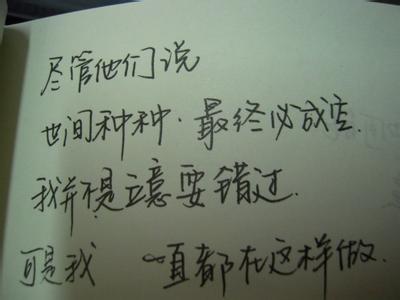 尽管他们说
世间种种·最终必成空.
我并不是立意要错过.
可是我 一直都在这样做.